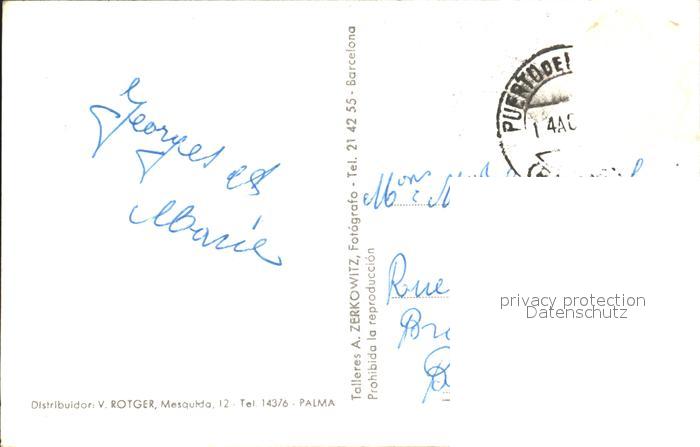 Georges et
Marie
Distribuidor: V. ROTGER, Mesquida, 12 - Tel. 143/6 - PALMA
Talleres A. ZERKOWITZ, Fotógrafo - Tel. 21 42 55 - Barcelona
Prohibida la reproducción
PUERTO DE
14 AG
Mons
Rue
privacy protection
Datenschutz